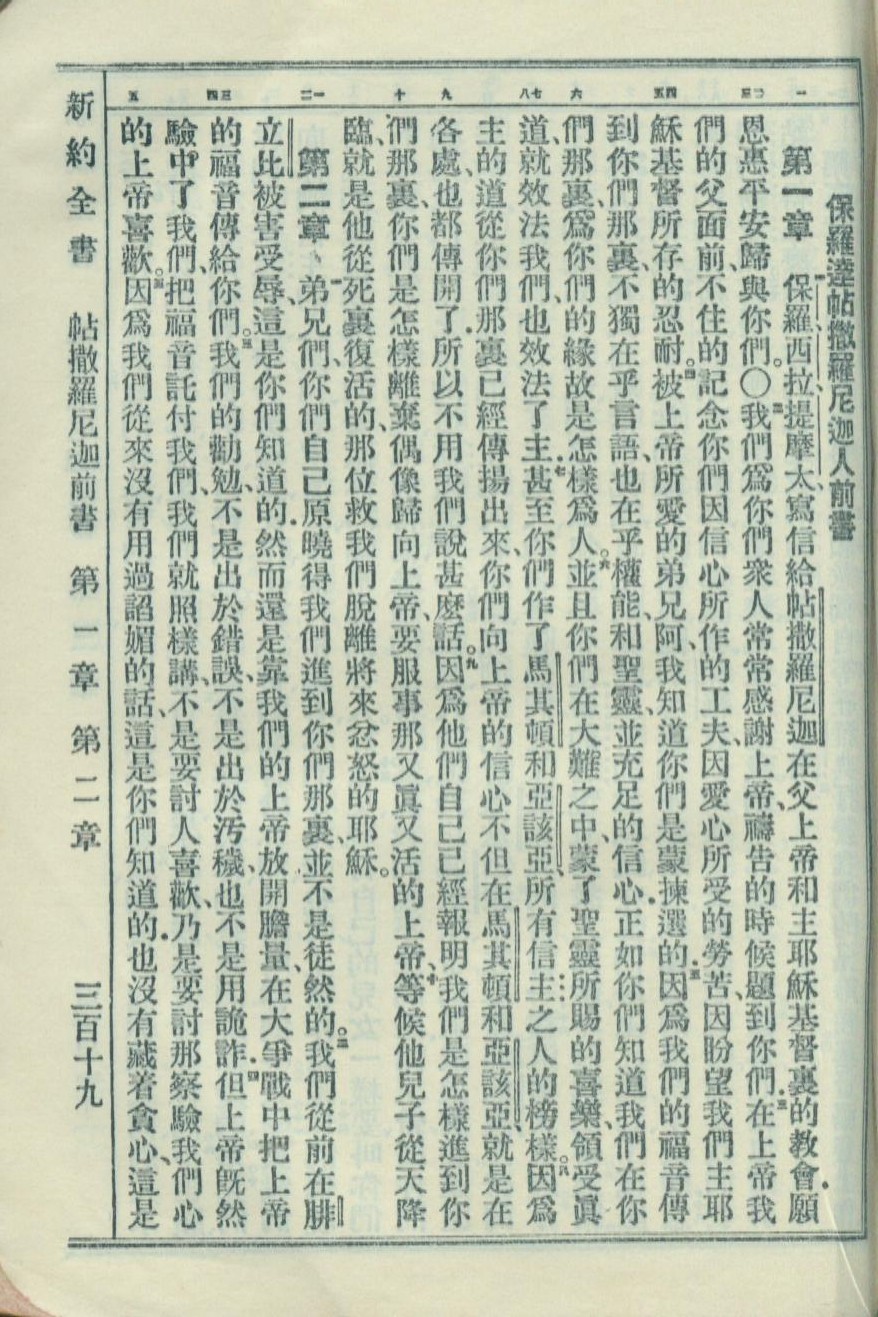 保羅達帖撒羅尼迦人前書
一
二三
四五
六
七八
九
十
一二
三四
五
第一章 一保羅、西拉、提摩太、寫信給帖撒羅尼迦在父上帝和主耶穌基督裏的教會．願
恩惠平安、歸與你們。〇二我們爲你們衆人常常感謝上帝、禱告的時候、題到你們．三在上帝我
們的父面前、不住的記念你們因信心所作的工夫、因愛心所受的勞苦、因盼望我們主耶
穌基督所存的忍耐。四被上帝所愛的弟兄阿、我知道你們是蒙揀選的．五因爲我們的福音傳
到你們那裏、不獨在乎言語、也在乎權能和聖靈、並充足的信心．正如你們知道、我們在你
們那裏、爲你們的緣故、是怎樣爲人。六並且你們在大難之中、蒙了聖靈所賜的喜樂、領受眞
道、就效法我們、也效法了主．七甚至你們作了馬其頓和亞該亞、所有信主之人的榜樣。八因爲
主的道從你們那裏已經傳揚出來、你們向上帝的信心不但在馬其頓和亞該亞、就是在
各處、也都傳開了．所以不用我們說甚麼話。九因爲他們自己已經報明我們是怎樣進到你
們那裏、你們是怎樣離棄偶像歸向上帝、要服事那又眞又活的上帝、十等候他兒子從天降
臨、就是他從死裏復活的、那位救我們脫離將來忿怒的耶穌。
第二章 一弟兄們、你們自己原曉得我們進到你們那裏、並不是徒然的。二我們從前在腓
立比被害受辱、這是你們知道的．然而還是靠我們的上帝放開膽量、在大爭戰中把上帝
的福音傳給你們。三我們的勸勉、不是出於錯誤、不是出於汚穢、也不是用詭詐．四但上帝旣然
驗中了我們、把福音託付我們、我們就照樣講、不是要討人喜歡、乃是要討那察驗我們心
的上帝喜歡。五因爲我們從來沒有用過諂媚的話、這是你們知道的．也沒有藏着貪心、這是
新約全書 帖撒羅尼迦前書 第一章 第二章 三百十九